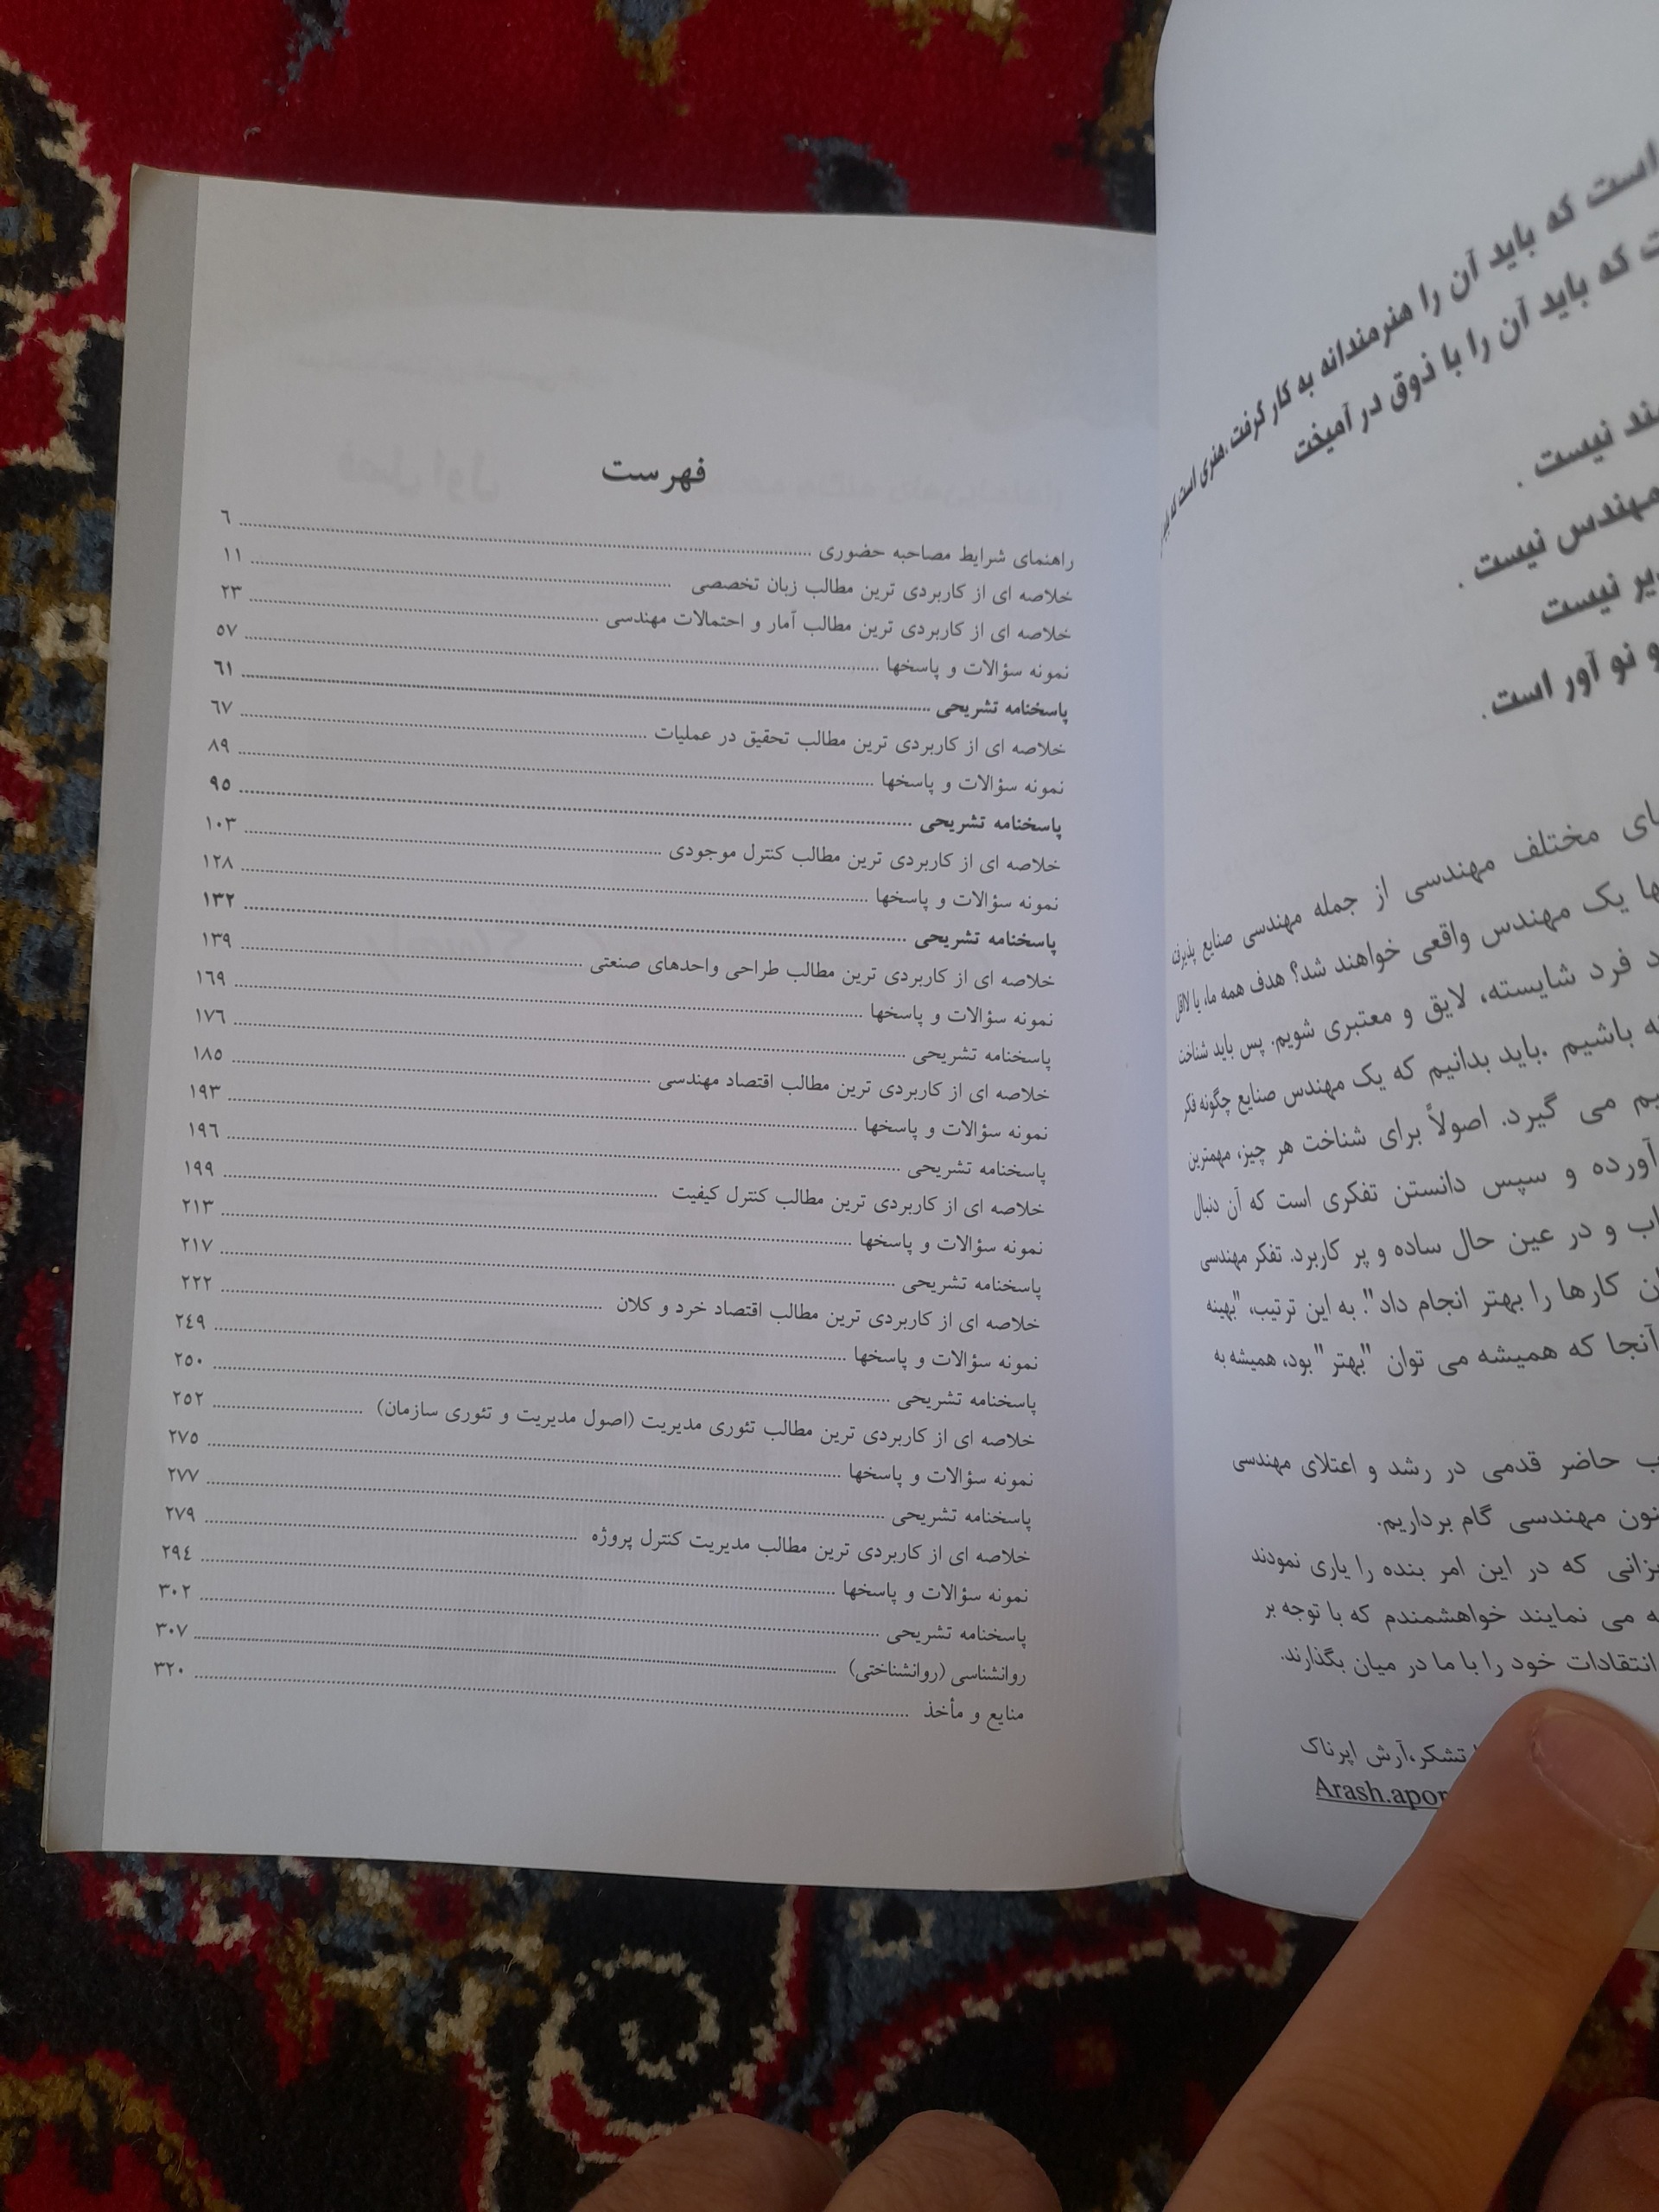 است که باید آن را هنرمندانه به کار گرفت، هنری است که
که باید آن را با ذوق در آمیخت
نیست .
مهندس نیست .
نیست
و نو آور است.
مختلف مهندسی از جمله مهندسی صنایع پذیرفته
یک مهندس واقعی خواهند شد؟ هدف همه ما، یا لااقل
فرد شایسته، لایق و معتبری شویم. پس باید شناخت
باشیم .باید بدانیم که یک مهندس صنایع چگونه فکر
می گیرد. اصولاً برای شناخت هر چیز، مهمترین
آورده و سپس دانستن تفکری است که آن دنبال
و در عین حال ساده و پر کاربرد. تفکر مهندسی
کارها را بهتر انجام داد". به این ترتیب، "بهینه
آنجا که همیشه می توان "بهتر" بود، همیشه به
حاضر قدمی در رشد و اعتلای مهندسی
مهندسی گام برداریم.
که در این امر بنده را یاری نمودند
می نمایند خواهشمندم که با توجه بر
انتقادات خود را با ما در میان بگذارند.
تشکر،آرش اپرناک
Arash.apor
فهرست
راهنمای شرایط مصاحبه حضوری ........ ٦
خلاصه ای از کاربردی ترین مطالب زبان تخصصی ........ ۱۱
خلاصه ای از کاربردی ترین مطالب آمار و احتمالات مهندسی ........ ۲۳
نمونه سؤالات و پاسخها ........ ٥۷
پاسخنامه تشریحی ........ ٦۱
خلاصه ای از کاربردی ترین مطالب تحقیق در عملیات ........ ٦۷
نمونه سؤالات و پاسخها ........ ۸۹
پاسخنامه تشریحی ........ ۹٥
خلاصه ای از کاربردی ترین مطالب کنترل موجودی ........ ۱۰۳
نمونه سؤالات و پاسخها ........ ۱۲۸
پاسخنامه تشریحی ........ ۱۳۲
خلاصه ای از کاربردی ترین مطالب طراحی واحدهای صنعتی ........ ۱۳۹
نمونه سؤالات و پاسخها ........ ۱٦۹
پاسخنامه تشریحی ........ ۱۷٦
خلاصه ای از کاربردی ترین مطالب اقتصاد مهندسی ........ ۱۸٥
نمونه سؤالات و پاسخها ........ ۱۹۳
پاسخنامه تشریحی ........ ۱۹٦
خلاصه ای از کاربردی ترین مطالب کنترل کیفیت ........ ۱۹۹
نمونه سؤالات و پاسخها ........ ۲۱۳
پاسخنامه تشریحی ........ ۲۱۷
خلاصه ای از کاربردی ترین مطالب اقتصاد خرد و کلان ........ ۲۲۲
نمونه سؤالات و پاسخها ........ ۲٤۹
پاسخنامه تشریحی ........ ۲٥۰
خلاصه ای از کاربردی ترین مطالب تئوری مدیریت (اصول مدیریت و تئوری سازمان) ........ ۲٥۲
نمونه سؤالات و پاسخها ........ ۲۷٥
پاسخنامه تشریحی ........ ۲۷۷
خلاصه ای از کاربردی ترین مطالب مدیریت کنترل پروژه ........ ۲۷۹
نمونه سؤالات و پاسخها ........ ۲۹٤
پاسخنامه تشریحی ........ ۳۰۲
روانشناسی (روانشناختی) ........ ۳۰۷
منابع و مأخذ ........ ۳۲۰